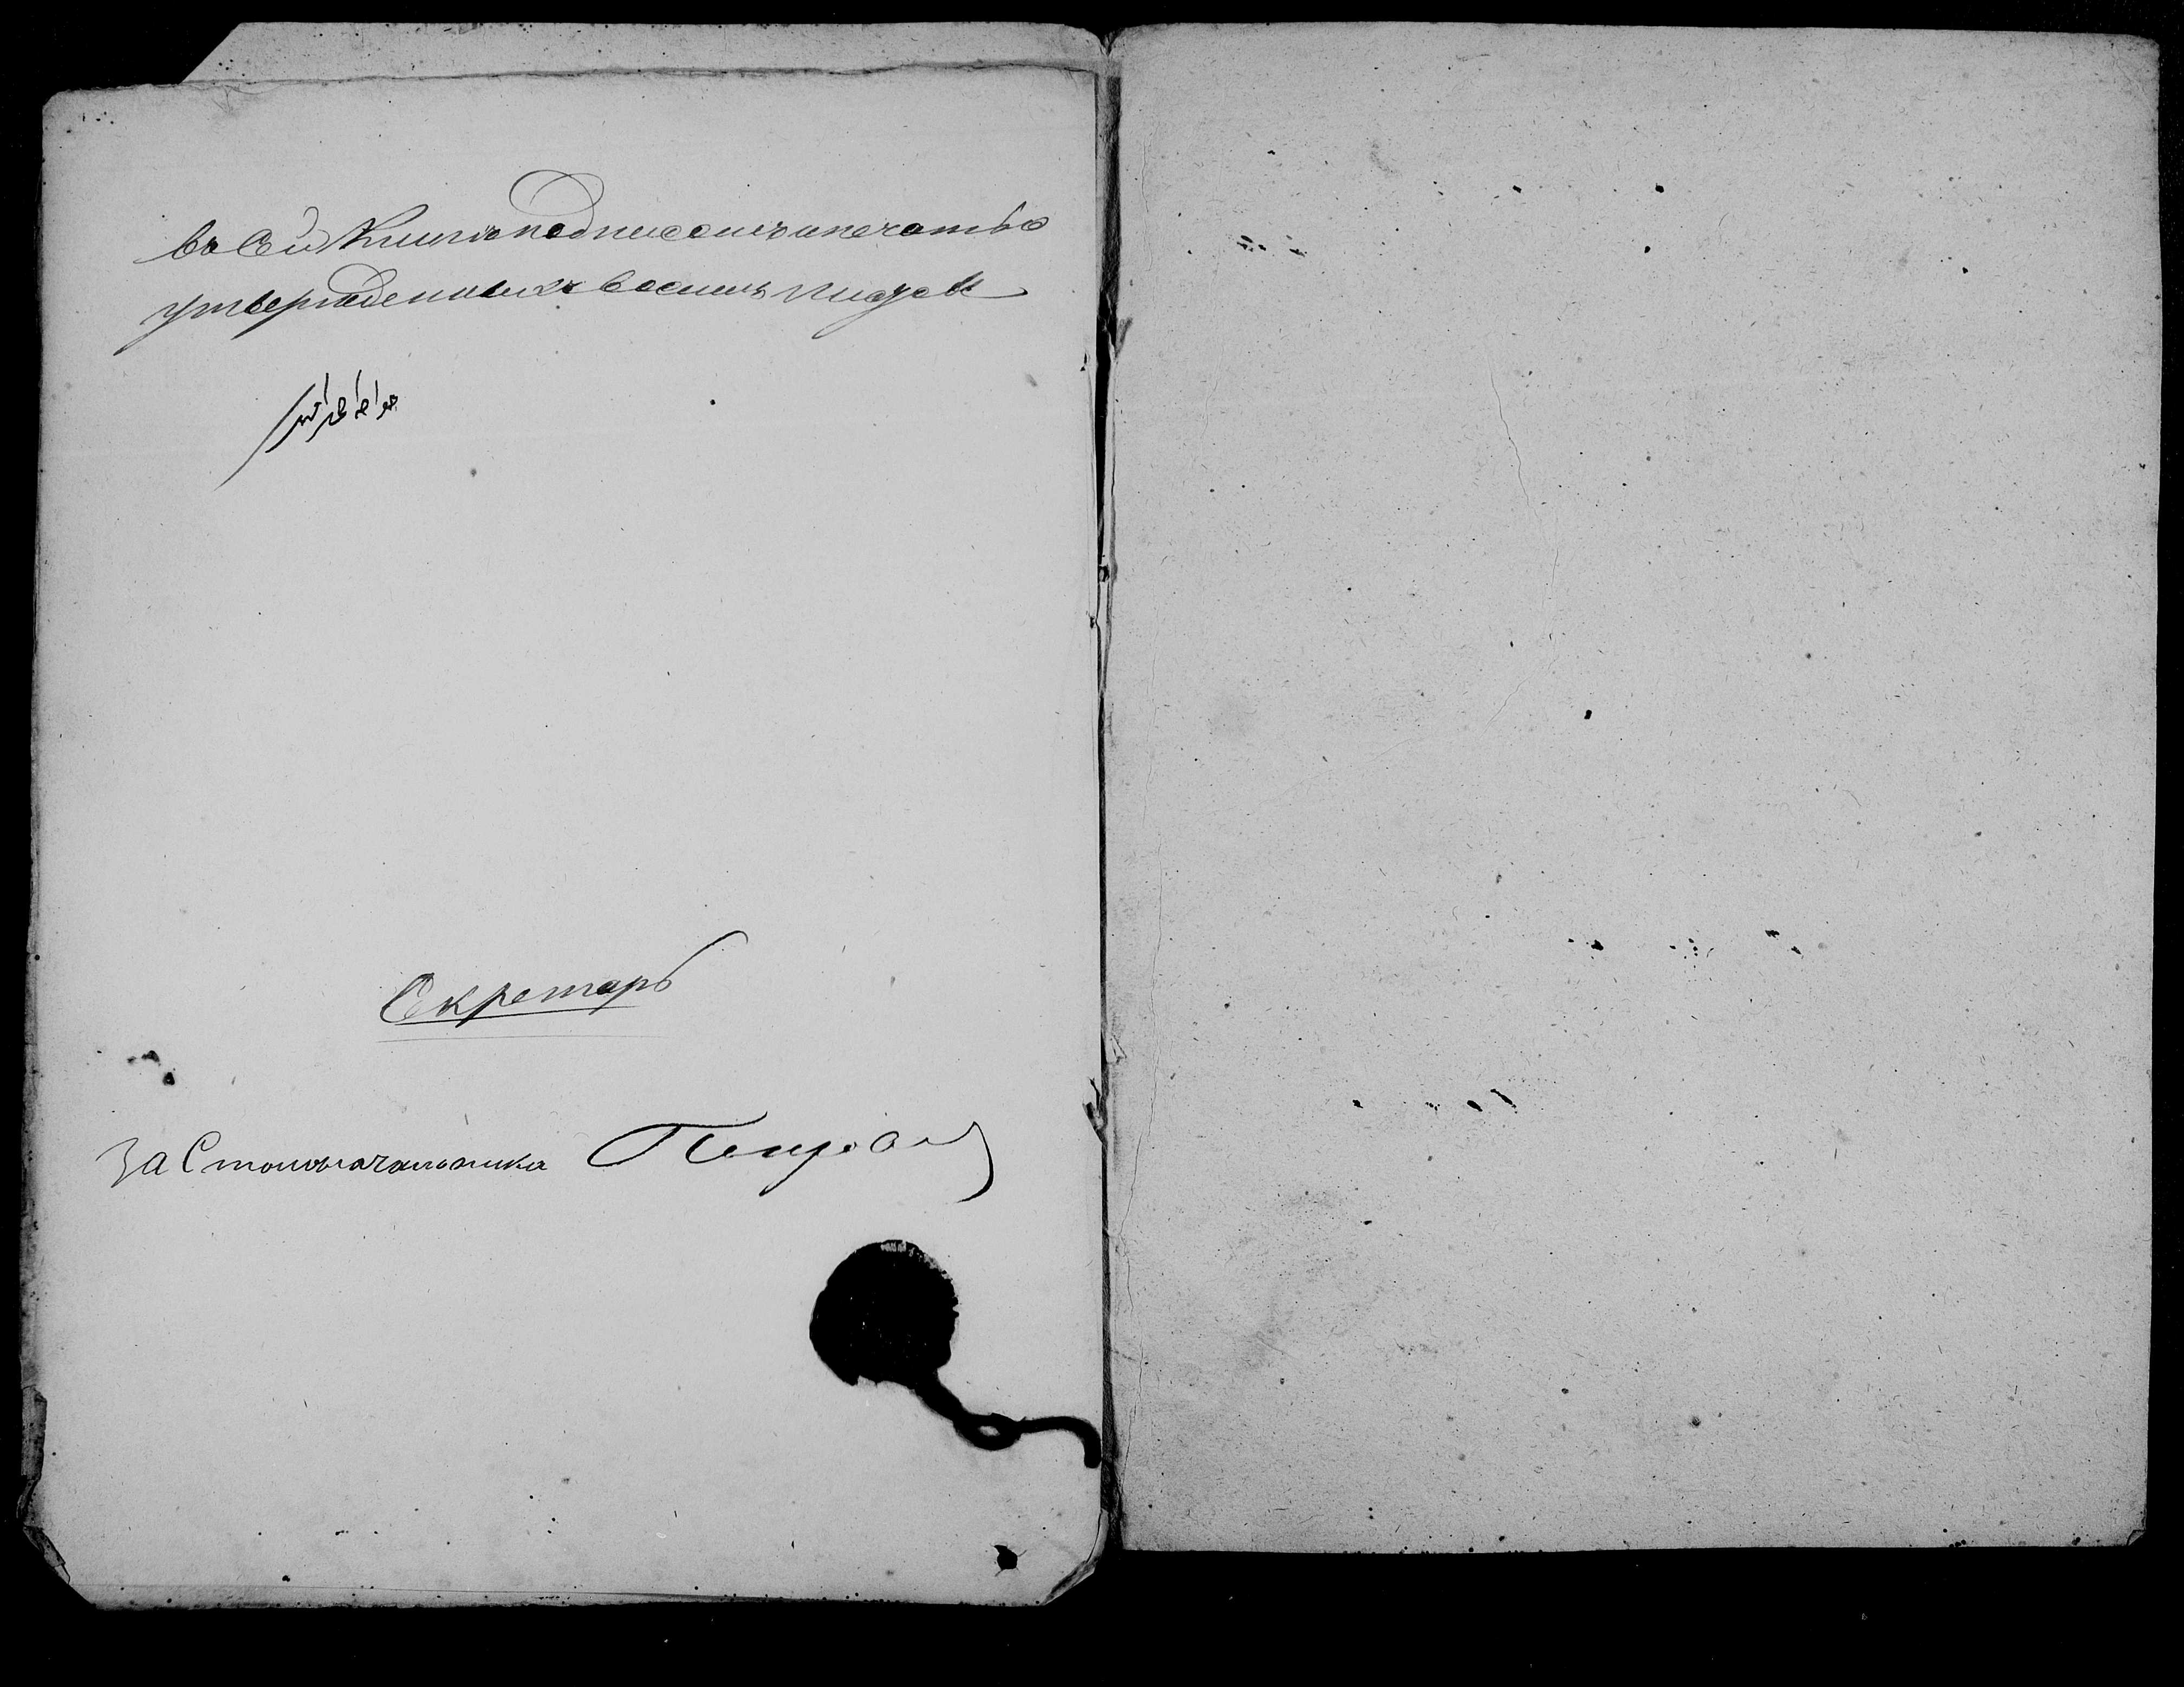 въ Сей Книгѣ подписомъ и печатью
утвержденныхъ восемь листов
Секретарь
За Столоначальника